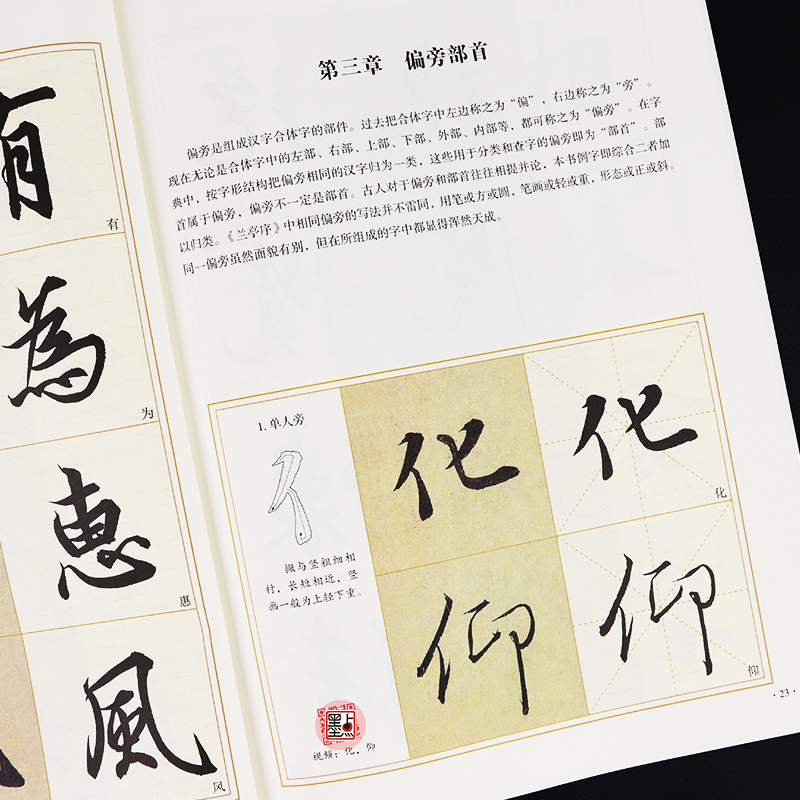 有
有
為
为
惠
惠
風
风
第三章 偏旁部首
偏旁是组成汉字合体字的部件。过去把合体字中左边称之为“偏”，右边称之为“旁”。
现在无论是合体字中的左部、右部、上部、下部、外部、内部等，都可称之为“偏旁”。在字
典中，按字形结构把偏旁相同的汉字归为一类，这些用于分类和查字的偏旁即为“部首”。部
首属于偏旁，偏旁不一定是部首。古人对于偏旁和部首往往相提并论，本书例字即综合二者加
以归类。《兰亭序》中相同偏旁的写法并不雷同，用笔或方或圆，笔画或轻或重，形态或正或斜。
同一偏旁虽然面貌有别，但在所组成的字中都显得浑然天成。
1. 单人旁
亻
撇与竖粗细相
衬，长短相近，竖
画一般为上轻下重。
墨点
视频：化，仰
化
化
化
仰
仰
仰
·23·